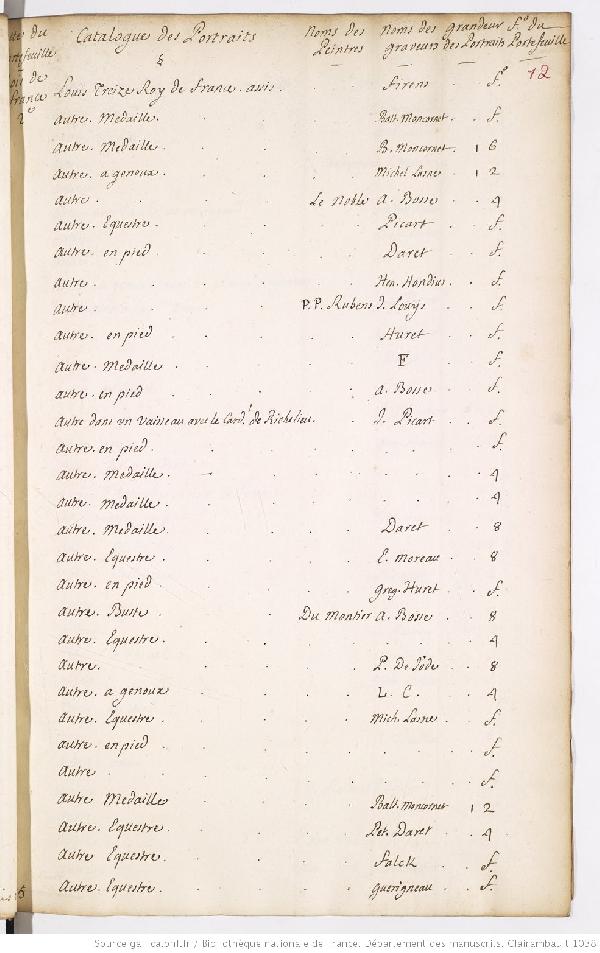 Catalogue des Portraits Noms des Peintres Noms des graveurs grandeur des Portraits f.º du Portefeuille
&
12
Louis Treize Roy de France. assis. firens f.º
autre. Medaille. Balt. Moncornet. f.
autre. Medaille. B. Moncornet. 16
autre. a genoux. Michel Lasne 12
autre. Le Noble A. Bosse 4
autre. Equestre. Picart f.
autre. en pied Daret f.
autre. Hen. Hondius. f.
autre. P.P. Rubens J. Louys f.
autre. en pied Huret f.
autre. Medaille. F f.
autre. en pied a. Bosse f.
autre dans un Vaisseau avec le Card.l de Richelieu. J. Picart f.
autre. en pied. f.
autre. Medaille. 4
autre. Medaille. 4
autre. Medaille Daret 8
autre. Equestre. E. moreau 8
autre. en pied greg. Huret f.
autre. Buste. Du Montier A. Bosse 8
autre. Equestre. 4
autre. P. De Jode 8
autre. a genoux L. C. 4
autre. Equestre. Mich. Lasne f.
autre. en pied f.
autre f.
autre Medaille Balt. moncornet 12
autre. Equestre. Pet. Daret 4
autre. Equestre. falck f.
autre. Equestre. guerigneau f.
Source gallica.bnf.fr / Bibliothèque nationale de France. Département des manuscrits. Clairambault 1038